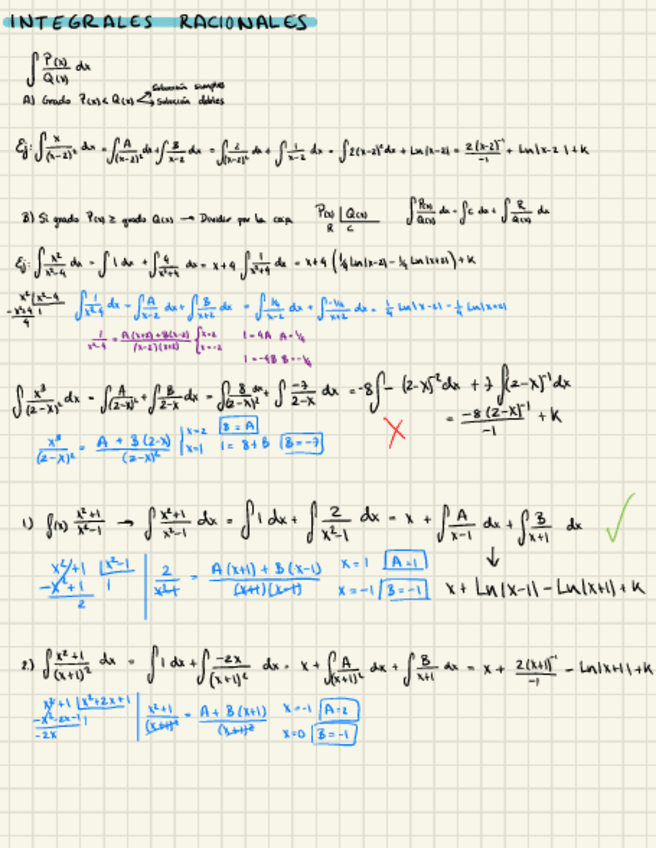 INTEGRALES RACIONALES
∫ P(x)/Q(x) dx
A) Grado P(x) < Q(x) < Solución simples
↘ Solución dobles
Ej: ∫ x/(x-2)² dx = ∫ A/(x-2)² dx + ∫ B/x-2 dx = ∫ 2/(x-2)² dx + ∫ 1/x-2 dx = ∫ 2(x-2)⁻² dx + Ln|x-2| = 2(x-2)⁻¹/-1 + Ln|x-2| + K
B) Si grado P(x) ≥ grado Q(x) → Dividir por la caja P(x) | Q(x) ∫ P(x)/Q(x) dx = ∫ C dx + ∫ R/Q(x) dx
R C
Ej: ∫ x²/x²-4 dx = ∫ 1 dx + ∫ 4/x²-4 dx = x+4 ∫ 1/x²-4 dx = x+4 (1/4 Ln|x-2| - 1/4 Ln|x+2|) + K
x² | x²-4
-x²+4 1
4
∫ 1/x²-4 dx = ∫ A/x-2 dx + ∫ B/x+2 dx = ∫ 1/4/x-2 dx + ∫ -1/4/x+2 dx = 1/4 Ln|x-2| - 1/4 Ln|x+2|
1/x²-4 = A(x+2)+B(x-2)/(x-2)(x+2) { x=2 1=4A A=1/4
x=-2 1=-4B B=-1/4
∫ x³/(2-x)² dx = ∫ A/(2-x)² + ∫ B/2-x dx = ∫ 8/(2-x)² dx + ∫ -7/2-x dx = -8∫ - (2-x)⁻² dx + 7 ∫ (2-x)⁻¹ dx
= -8(2-x)⁻¹/-1 + K
x³/(2-x)² = A + B(2-x)/(2-x)² | x=2 8=A
x=1 1=8+B B=-7
1) f(x) x²+1/x²-1 → ∫ x²+1/x²-1 dx = ∫ 1 dx + ∫ 2/x²-1 dx = x + ∫ A/x-1 dx + ∫ B/x+1 dx
x²+1 | x²-1
-x²+1 1
2
2/x²-1 = A(x+1) + B(x-1)/(x+1)(x-1) x=1 A=1
x=-1 B=-1
x + Ln|x-1| - Ln|x+1| + K
2) ∫ x²+1/(x+1)² dx = ∫ 1 dx + ∫ -2x/(x+1)² dx = x + ∫ A/(x+1)² dx + ∫ B/x+1 dx = x + 2(x+1)⁻¹/-1 - Ln|x+1| + K
x²+1 | x²+2x+1
-x²-2x-1 1
-2x
x²+1/(x+1)² = A + B(x+1)/(x+1)² x=-1 A=2
x=0 B=-1